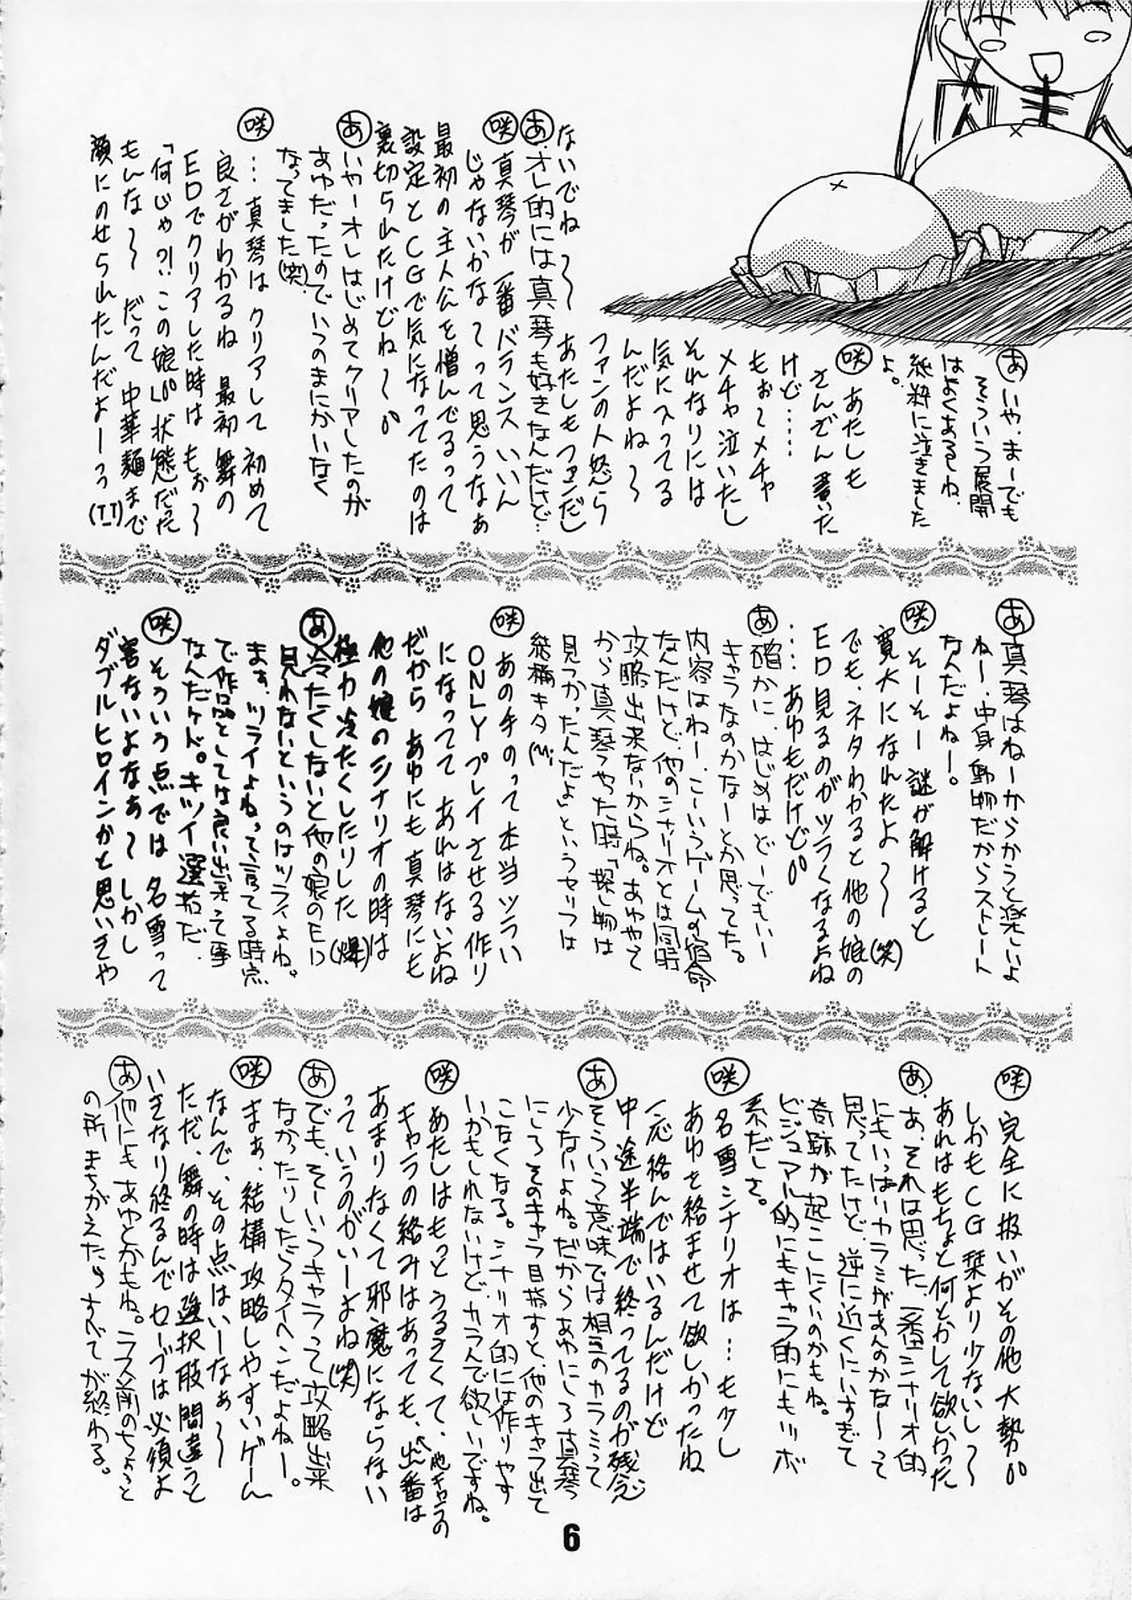 あ いや、まーでも
そういう展開
はよくあるしね、
純粋に泣きました
よ。
咲 あたしも
さんざん書いた
けど……
もぉ〜メチャ
メチャ泣いたし
それなりには
気に入ってる
んだよね〜
ファンの人怒ら
ないでね〜〜 あたしもファンだし
あ オレ的には真琴も好きなんだけど…
咲 真琴が一番バランスいいん
じゃないかなーって思うなぁ
最初の主人公を憎んでるって
設定とCGで気になってたのは
裏切られたけどね〜
あ いやーオレはじめてクリアしたのが
あゆだったのでいつのまにかいなく
なってました(笑)
咲 …真琴はクリアして初めて
良さがわかるね 最初舞の
EDでクリアした時はもぉ〜
「何じゃ?!この娘は」状態だった
もんな〜〜 だって中華麺まで
顔にのせられたんだよーっっ
(TT)
あ 真琴はねーからかうと楽しいよ
ねー、中身動物だからストレート
なんだよねー。
咲 そーそー 謎が解けると
寛大になれたよ〜〜(笑)
でも、ネタわかると他の娘の
ED見るのがツラくなるよね
……あゆもだけど
あ 確かに、はじめはどーでもいー
キャラなのかなーとか思ってた。
内容はねー、こーいうゲームの宿命
なんだけど、他のシナリオとは同時
攻略出来ないからね。あゆやって
から真琴やった時「探し物は
見つかったんだよ」というセリフは
結構キタ
咲 あの手のって本当ツライ
ONLYプレイさせる作り
になってて あれはないよね
だから あゆにも真琴にも
他の娘のシナリオの時は
極力冷たくしたりした(爆)
あ 冷たくしないと他の娘のED
見れないというのはツライよね。
まぁ、ツライよねって言ってる時点
で作品としては良い出来って事
なんだケド。キツイ選択だ。
咲 そういう点では名雪って
害ないよなぁ〜 しかし
ダブルヒロインかと思いきや
咲 完全に扱いがその他大勢
しかもCG栞より少ないし〜
あれはもちょと何とかして欲しかった
あ あ、それは思った。一番シナリオ的
にもいっぱいカラミがあんのかなーって
思ってたけど、逆に近くにいすぎて
奇跡が起こりにくいのかもね。
ビジュアル的にもキャラ的にもツボ
系だしさ。
咲 名雪シナリオは…も少し
あゆを絡ませて欲しかったね
一応絡んではいるんだけど
中途半端で終ってるのが残念
あ そういう意味では相互のカラミって
少ないよね。だからあゆにしろ真琴
にしろそのキャラ目指すと、他のキャラ出て
こなくなる。シナリオ的には作りやす
いかもしれないけど、カラんで欲しいですね。
咲 あたしはもっとうるさくて、他キャラの
キャラの絡みはあっても、出番は
あまりなくて邪魔にならない
っていうのがいーよね(笑)
あ でも、そーいうキャラって攻略出来
なかったりしたらタイヘンだよねー。
咲 まぁ、結構攻略しやすいゲーム
なんで、その点はいーなぁ〜
ただ、舞の時は選択肢間違うと
いきなり終るんでセーブは必須よ
あ 他にもあゆとかもね。ラス前のちょっと
の所 まちがえたらすべてが終わる。
6